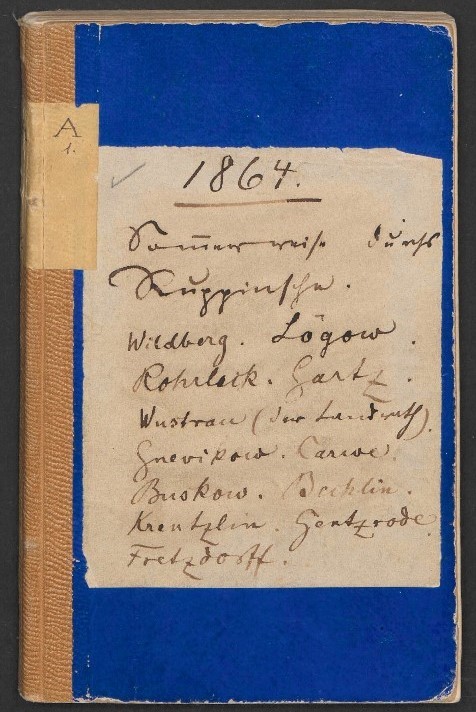 A
1.
1864.
Sommerreise durchs
Ruppinsche.
Wildberg. Lögow.
Rohrleck. Gartz.
Wustrau (der Landrath).
Gnevikow. Carwe.
Buskow. Bechlin.
Krentzlin. Gentzrode.
Fretzdorff.